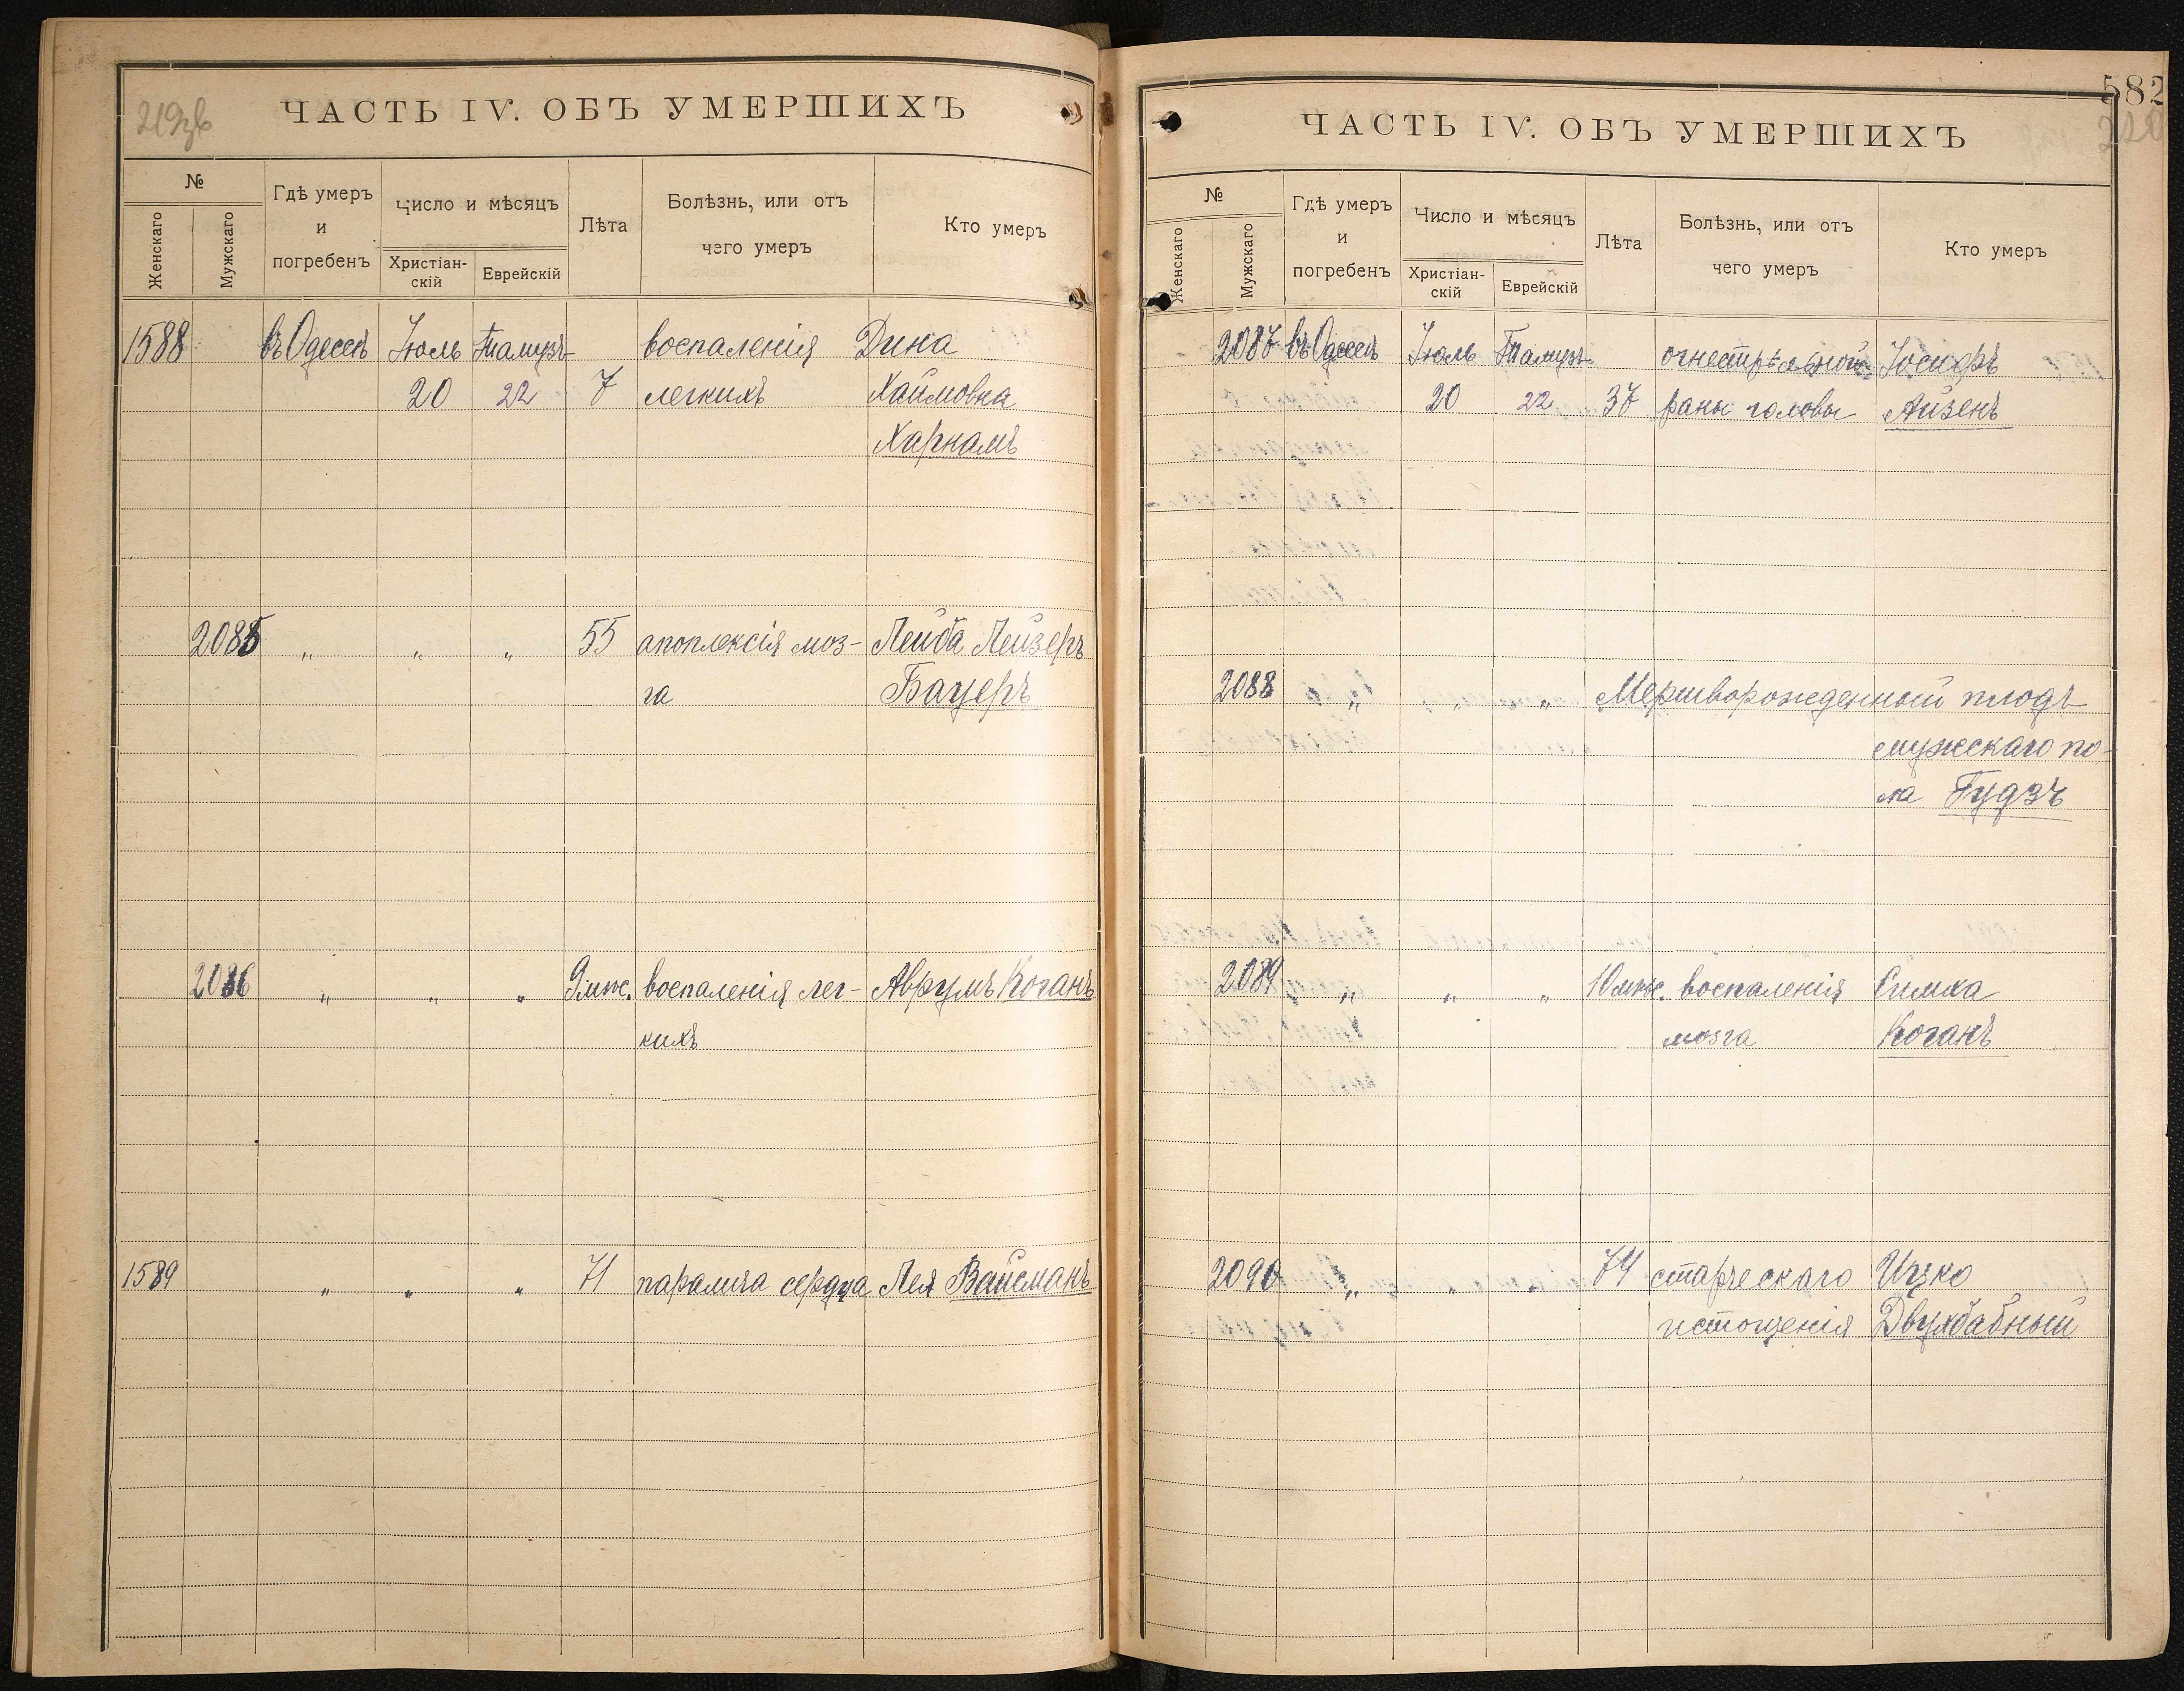 219зв
ЧАСТЬ IV. ОБЪ УМЕРШИХЪ
№
Женскаго
Мужскаго
Гдѣ умеръ
и
погребенъ
Число и мѣсяцъ
Христіан-
скій
Еврейскій
Лѣта
Болѣзнь, или отъ
чего умеръ
Кто умеръ
1588 въ Одессѣ Іюль Тамузъ воспаленія Дина
20 22 7 легкихъ Хаимовна
Харкамъ
2085 " " " 55 апоплексія моз- Лейба Лейзеръ
га Бауеръ
2086 " " " 9 мѣс. воспаленія лег- Аврумъ Коганъ
кихъ
1589 " " " 71 паралича сердца Лея Вайсманъ
582
220
ЧАСТЬ IV. ОБЪ УМЕРШИХЪ
№
Женскаго
Мужскаго
Гдѣ умеръ
и
погребенъ
Число и мѣсяцъ
Христіан-
скій
Еврейскій
Лѣта
Болѣзнь, или отъ
чего умеръ
Кто умеръ
2087 въ Одессѣ Іюль Тамузъ огнестрѣльной Іосифъ
20 22 37 раны головы Айзенъ
2088 " " " Мертворожденный плодъ
мужескаго по-
ла Гудзъ
2089 " " " 10 мѣс. воспаленія Симха
мозга Коганъ
2090 " " " 74 старческаго Ицко
истощенія Двухбабный